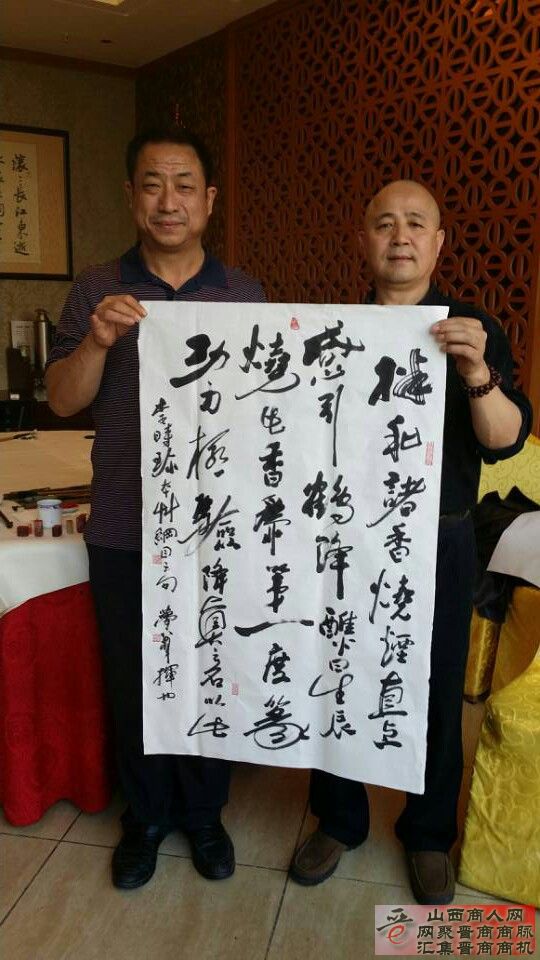 拌和諸香燒煙直上
感引鶴降醮星辰
燒此香為第一度籙
功力極驗降真之名以此
李時珍本艸綱目之句
滾長江東逝
水
山西商人网
网聚晋商商脉
汇集晋商商机